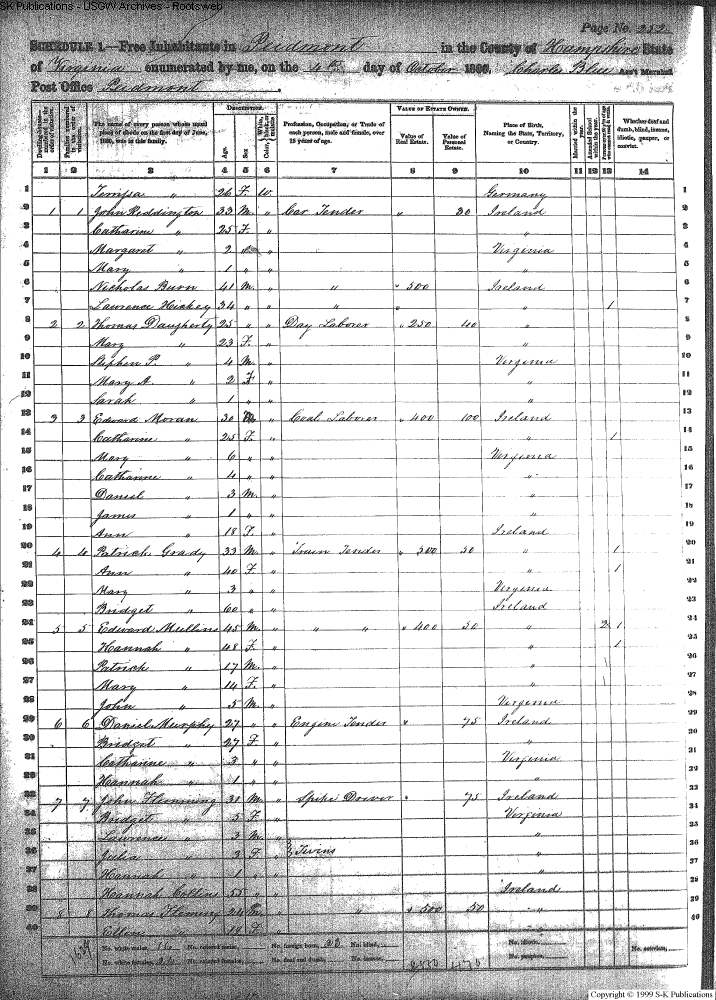 SK Publications - USGW Archives - Rootsweb
Page No. 252
SCHEDULE 1.—Free Inhabitants in Piedmont in the County of Hampshire State
of Virginia enumerated by me, on the 4th day of October 1860. Charles Blue Ass't Marshal
Post Office Piedmont.
Dwelling-houses numbered in the order of visitation.
Families numbered in the order of visitation.
The name of every person whose usual place of abode on the first day of June, 1860, was in this family.
DESCRIPTION.
Age.
Sex.
Color, White, black, or mulatto.
Profession, Occupation, or Trade of each person, male and female, over 15 years of age.
VALUE OF ESTATE OWNED.
Value of Real Estate.
Value of Personal Estate.
Place of Birth, Naming the State, Territory, or Country.
Married within the year.
Attended School within the year.
Whether deaf and dumb, blind, insane, idiotic, pauper, or convict.
1 2 3 4 5 6 7 8 9 10 11 12 13 14
1 " 26 F. W. Germany 1
2 1 1 John Reddington 33 M. " Car Tender " 30 Ireland 2
3 Catharine " 25 F. " " 3
4 Margaret " 2 " " Virginia 4
5 Mary " 1 " " " 5
6 Nicholas Burn 41 M. " " " 500 Ireland 6
7 Lawrence Hickey 34 " " " " " 1 7
8 2 2 Thomas Daugherty 25 " " Day Laborer " 250 40 " 8
9 Mary " 23 F. " " 9
10 Stephen P. " 4 M. " Virginia 10
11 Mary A. " 2 F " " 11
12 Sarah " 1 " " " 12
13 3 3 Edward Moran 30 M. " Coal Laborer " 400 100 Ireland 13
14 Catharine " 25 F. " " 1 14
15 Mary " 6 " " Virginia 15
16 Catharine " 4 " " " 16
17 Daniel " 3 M. " " 17
18 James " 1 " " " 18
19 Ann " 18 F. " Ireland 19
20 4 4 Patrick Grady 33 M. " Train Tender " 300 50 " 1 20
21 Ann " 40 F. " " 1 21
22 Mary " 3 " " Virginia 22
23 Bridget " 60 " " Ireland 23
24 5 5 Edward Mullins 45 M. " " " " 400 50 " 2 1 24
25 Hannah " 48 F. " " 1 25
26 Patrick " 17 M. " " 1 26
27 Mary " 14 F. " " 1 27
28 John " 5 M. " Virginia 28
29 6 6 Daniel Murphy 27 " " Engine Tender " 75 Ireland 29
30 Bridget " 27 F. " " 30
31 Catharine " 3 " " Virginia 31
32 Hannah " 1 " " " 32
33 7 7 John Flemming 31 M. " Spike Driver " 75 Ireland 33
34 Bridget " 5 F. " Virginia
35 Lawrence " 3 M. " " 35
36 Julia " 3 F. " Twins " 36
37 Hannah " 1 " " " 37
38 Hannah Collins 55 " " Ireland
39 8 8 Thomas Fleming 24 M. " " " 500 50 " 39
40 Ellen " 18 F. " " 40
No. white males, No. colored males, No. foreign born, No. blind, No. idiotic, No. convicts,
No. white females, No. colored females, No. deaf and dumb, No. insane, No. paupers,
Copyright © 1999 S-K Publications